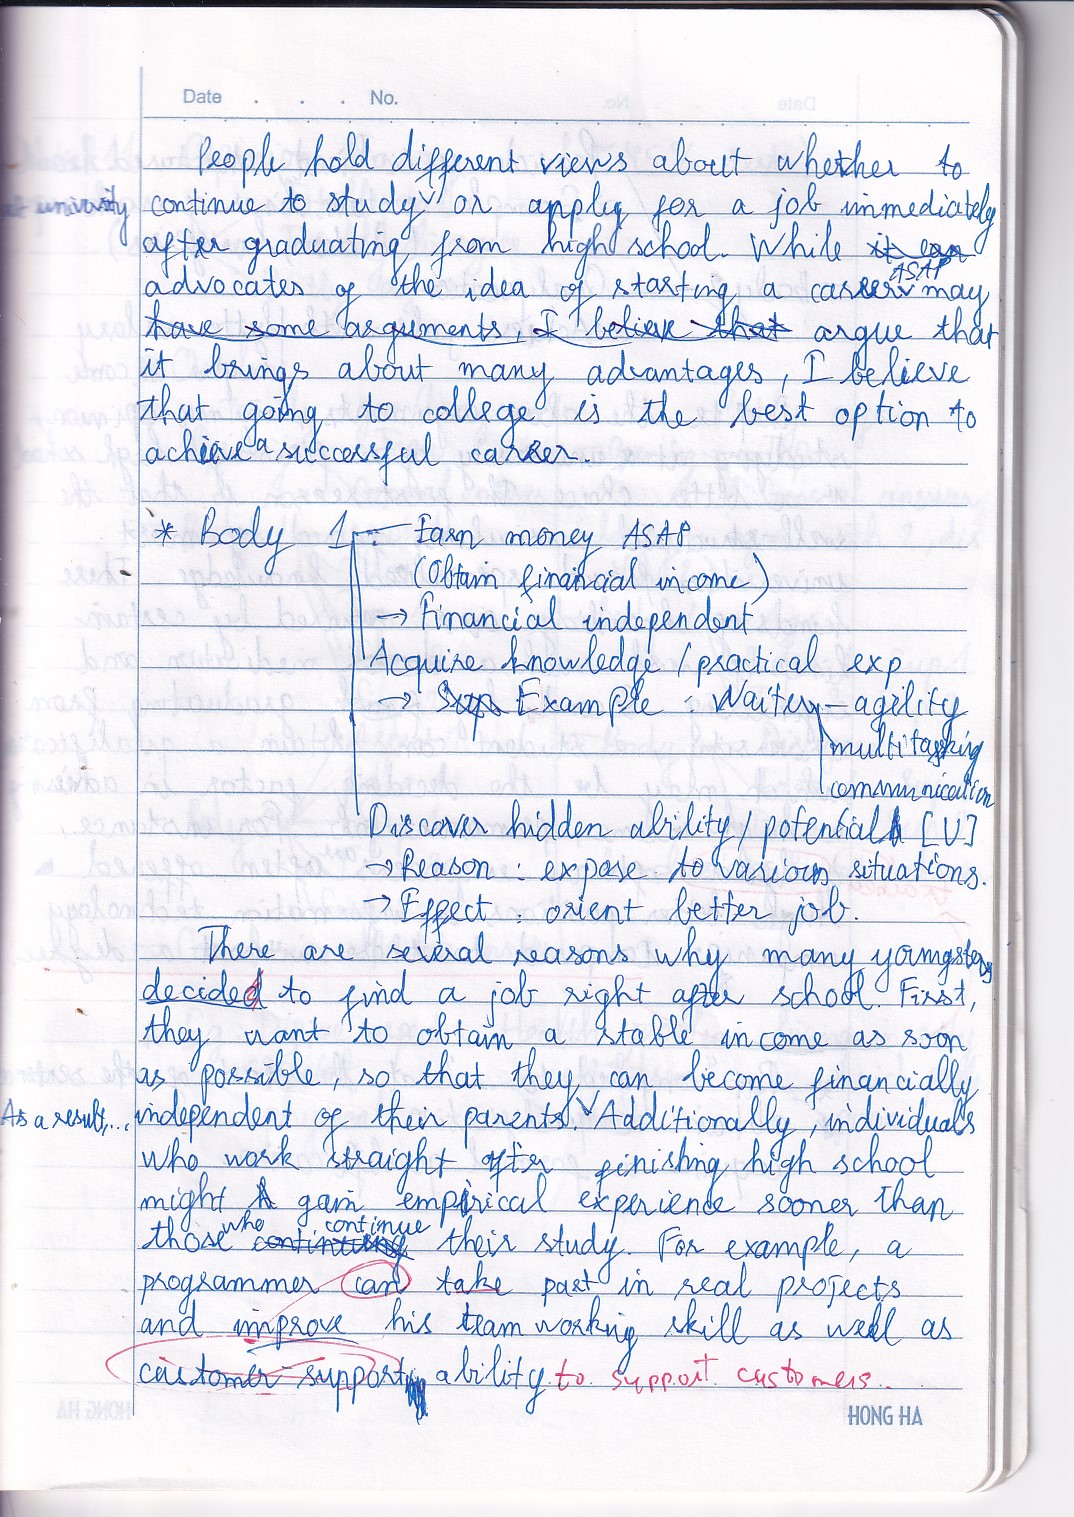 Date . . . No.
People hold different views about whether to
at university continue to study or apply for a job immediately
after graduating from high school. While it can
ASAP
advocates of the idea of starting a career may
have some arguments, I believe that argue that
it brings about many advantages, I believe
that going to college is the best option to
achieve a successful career.
* Body 1 : - Earn money ASAP
(Obtain financial income)
→ Financial independent
Acquire knowledge / practical exp
→ Example : Waiter - agility
multitasking
communication
Discover hidden ability / potential [V]
→ Reason : expose to various situations.
→ Effect : orient better job.
There are several reasons why many youngsters
decided to find a job right after school. First,
they want to obtain a stable income as soon
as possible, so that they can become financially
As a result,... independent of their parents. Additionally, individuals
who work straight after finishing high school
might gain empirical experience sooner than
who continue
those continuing their study. For example, a
programmer can take part in real projects
and improve his teamworking skill as well as
customer support ability to support customers.
HONG HA